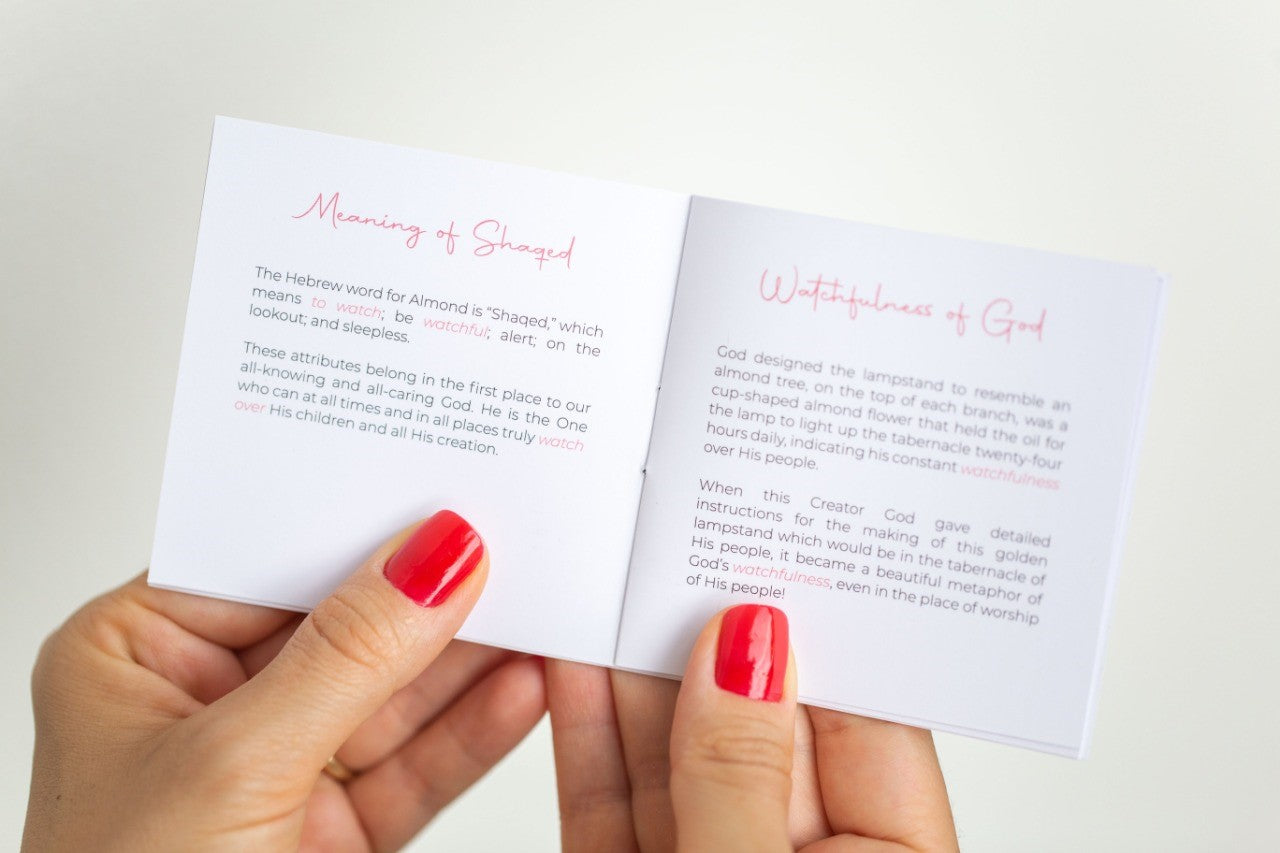 Meaning of Shaqed
The Hebrew word for Almond is “Shaqed,” which
means to watch; be watchful; alert; on the
lookout; and sleepless.
These attributes belong in the first place to our
all-knowing and all-caring God. He is the One
who can at all times and in all places truly watch
over His children and all His creation.
Watchfulness of God
God designed the lampstand to resemble an
almond tree, on the top of each branch, was a
cup-shaped almond flower that held the oil for
the lamp to light up the tabernacle twenty-four
hours daily, indicating his constant watchfulness
over His people.
When this Creator God gave detailed
instructions for the making of this golden
lampstand which would be in the tabernacle of
His people, it became a beautiful metaphor of
God’s watchfulness, even in the place of worship
of His people!